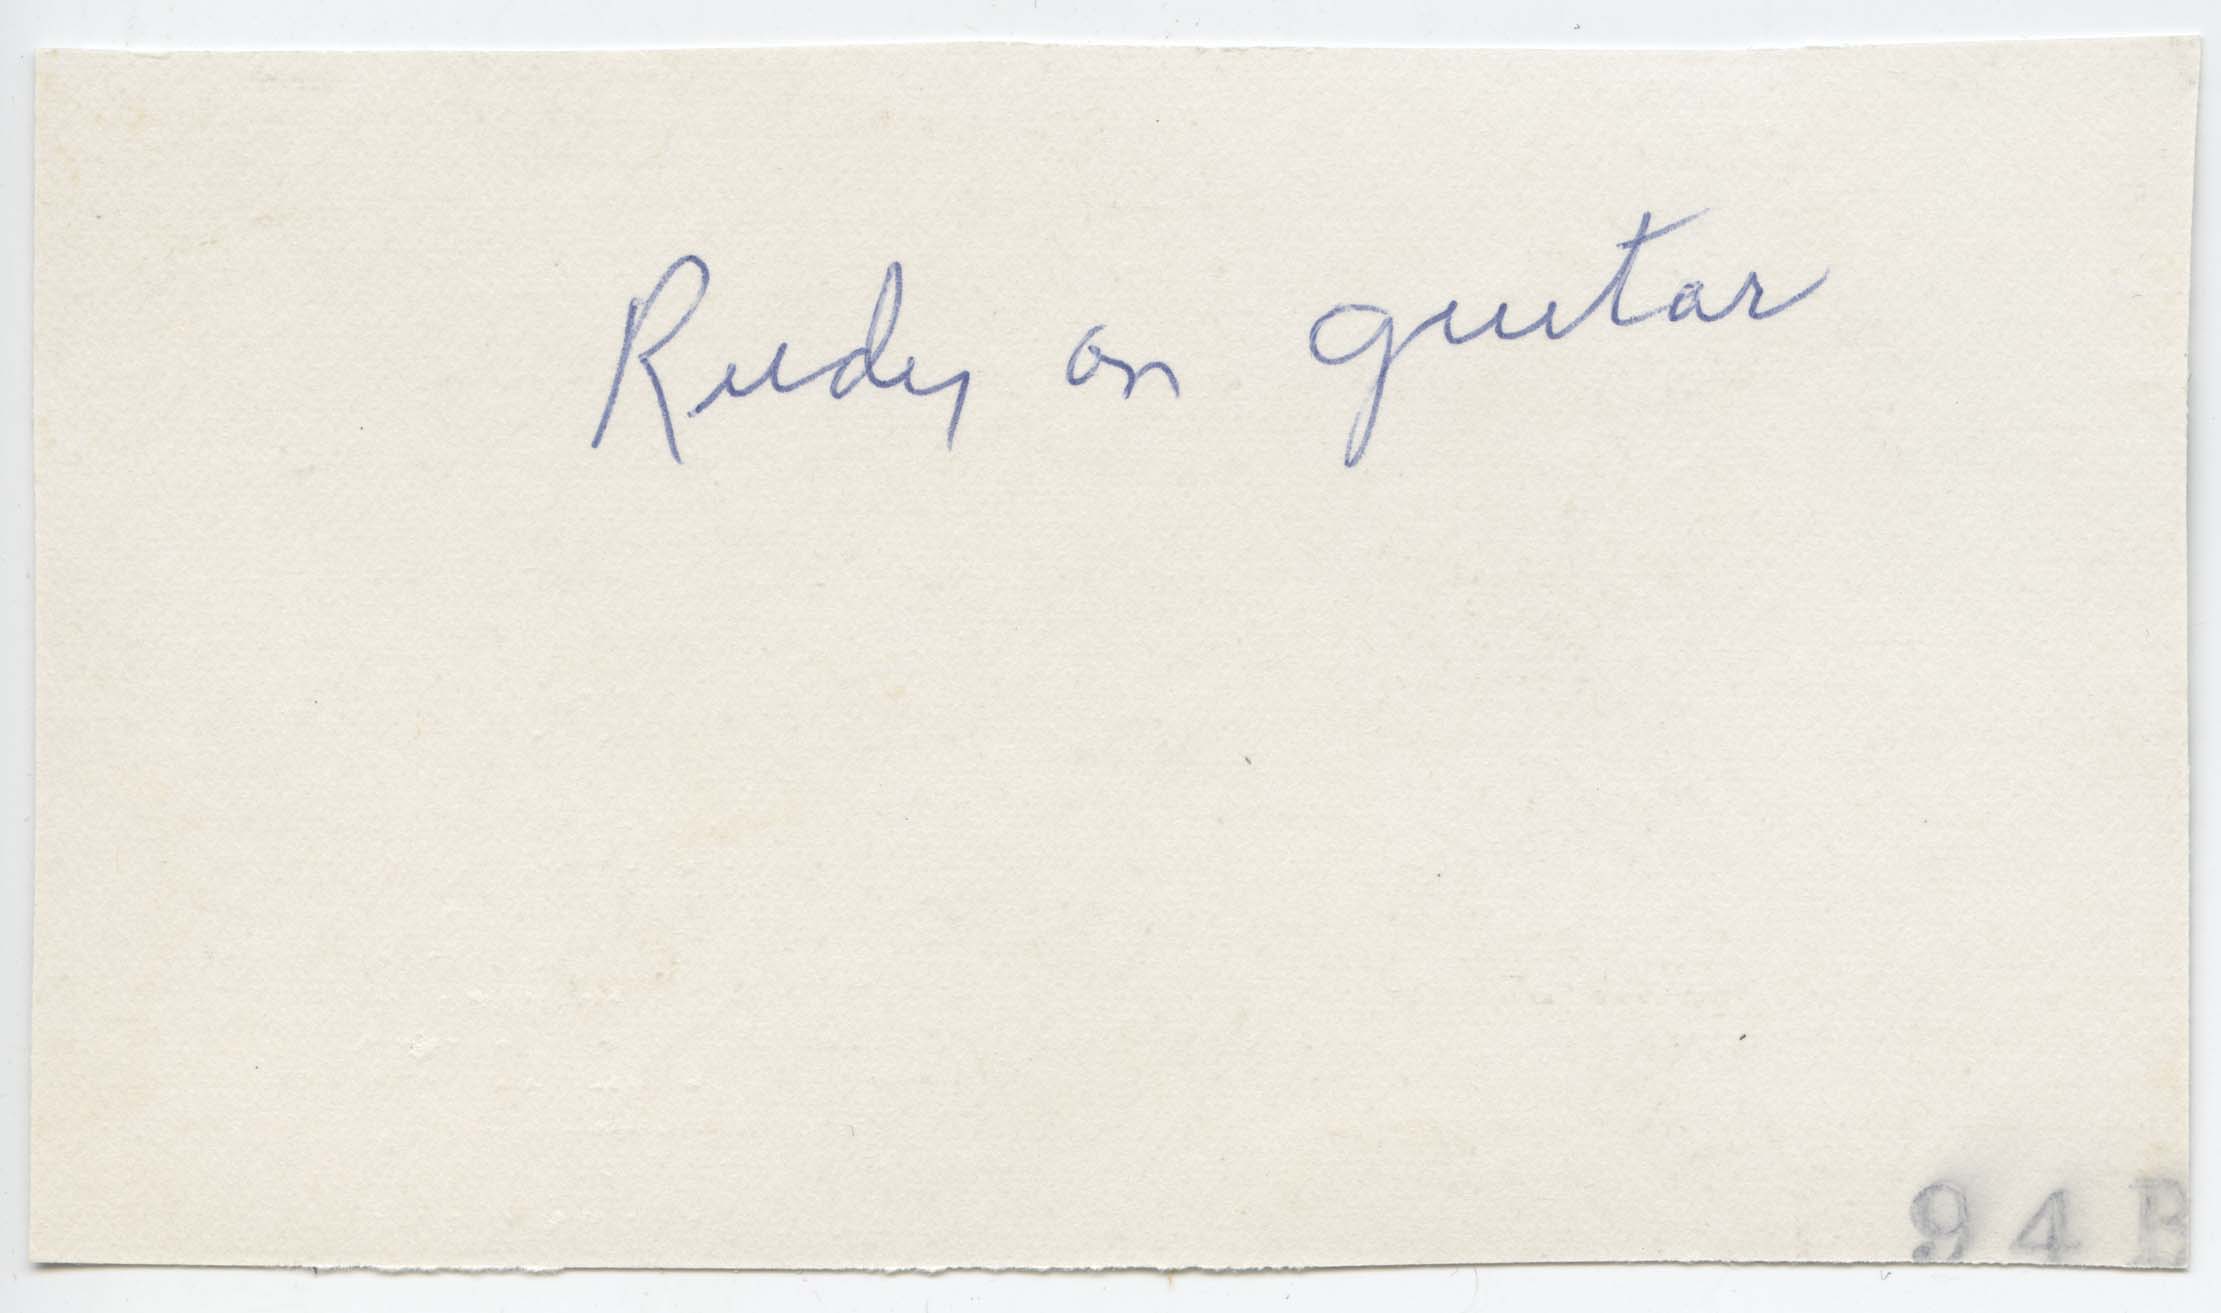 Rudy on guitar
94B